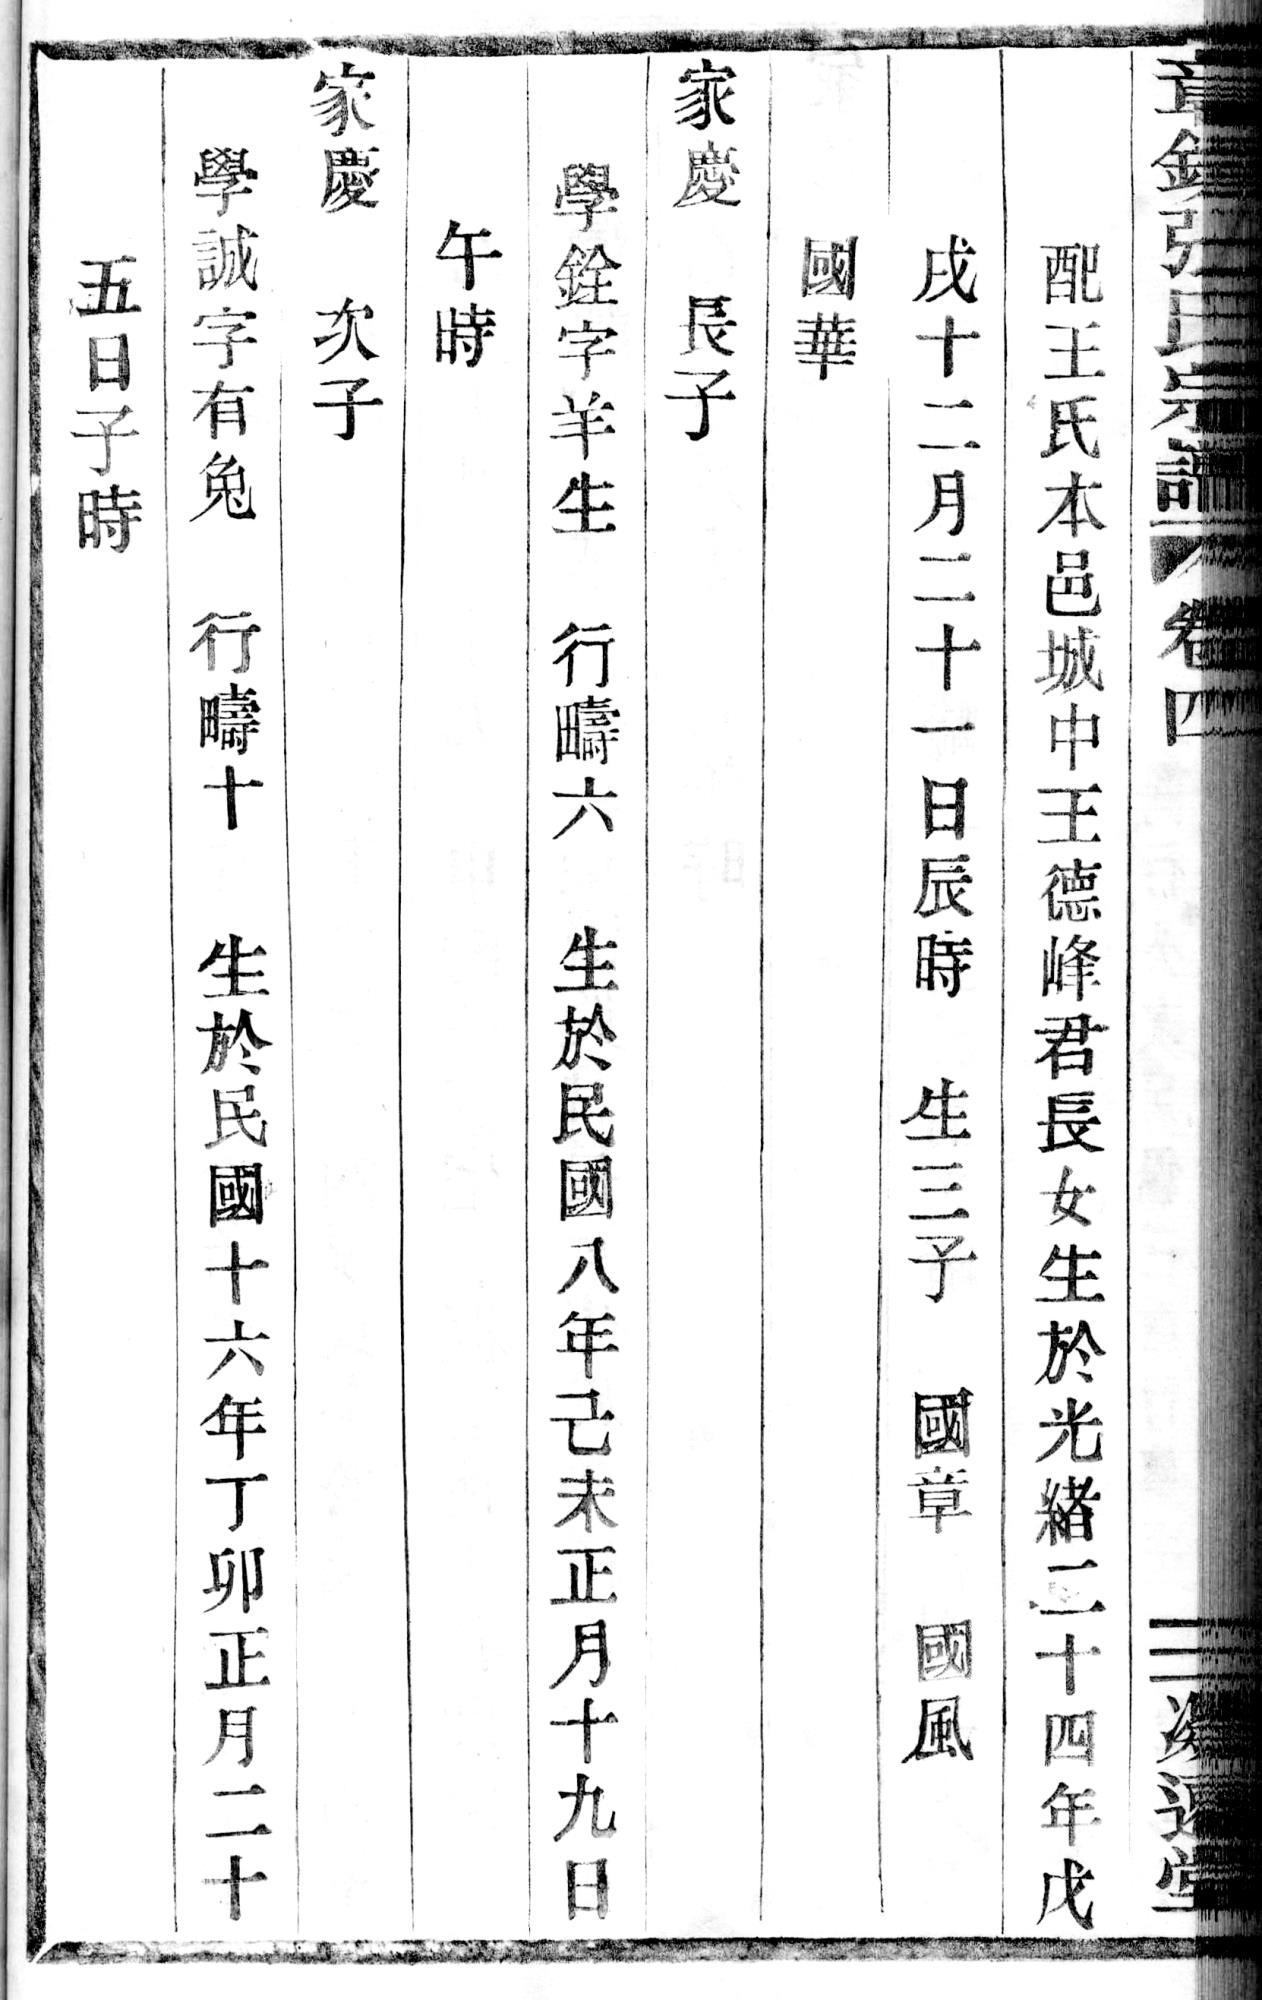 章鎮張氏宗譜 卷四 二 遠堂
配王氏本邑城中王德峰君長女生於光緒二十四年戊
戌十二月二十一日辰時 生三子 國章 國風
國華
家慶 長子
學銓字羊生 行疇六 生於民國八年己未正月十九日
午時
家慶 次子
學誠字有兔 行疇十 生於民國十六年丁卯正月二十
五日子時